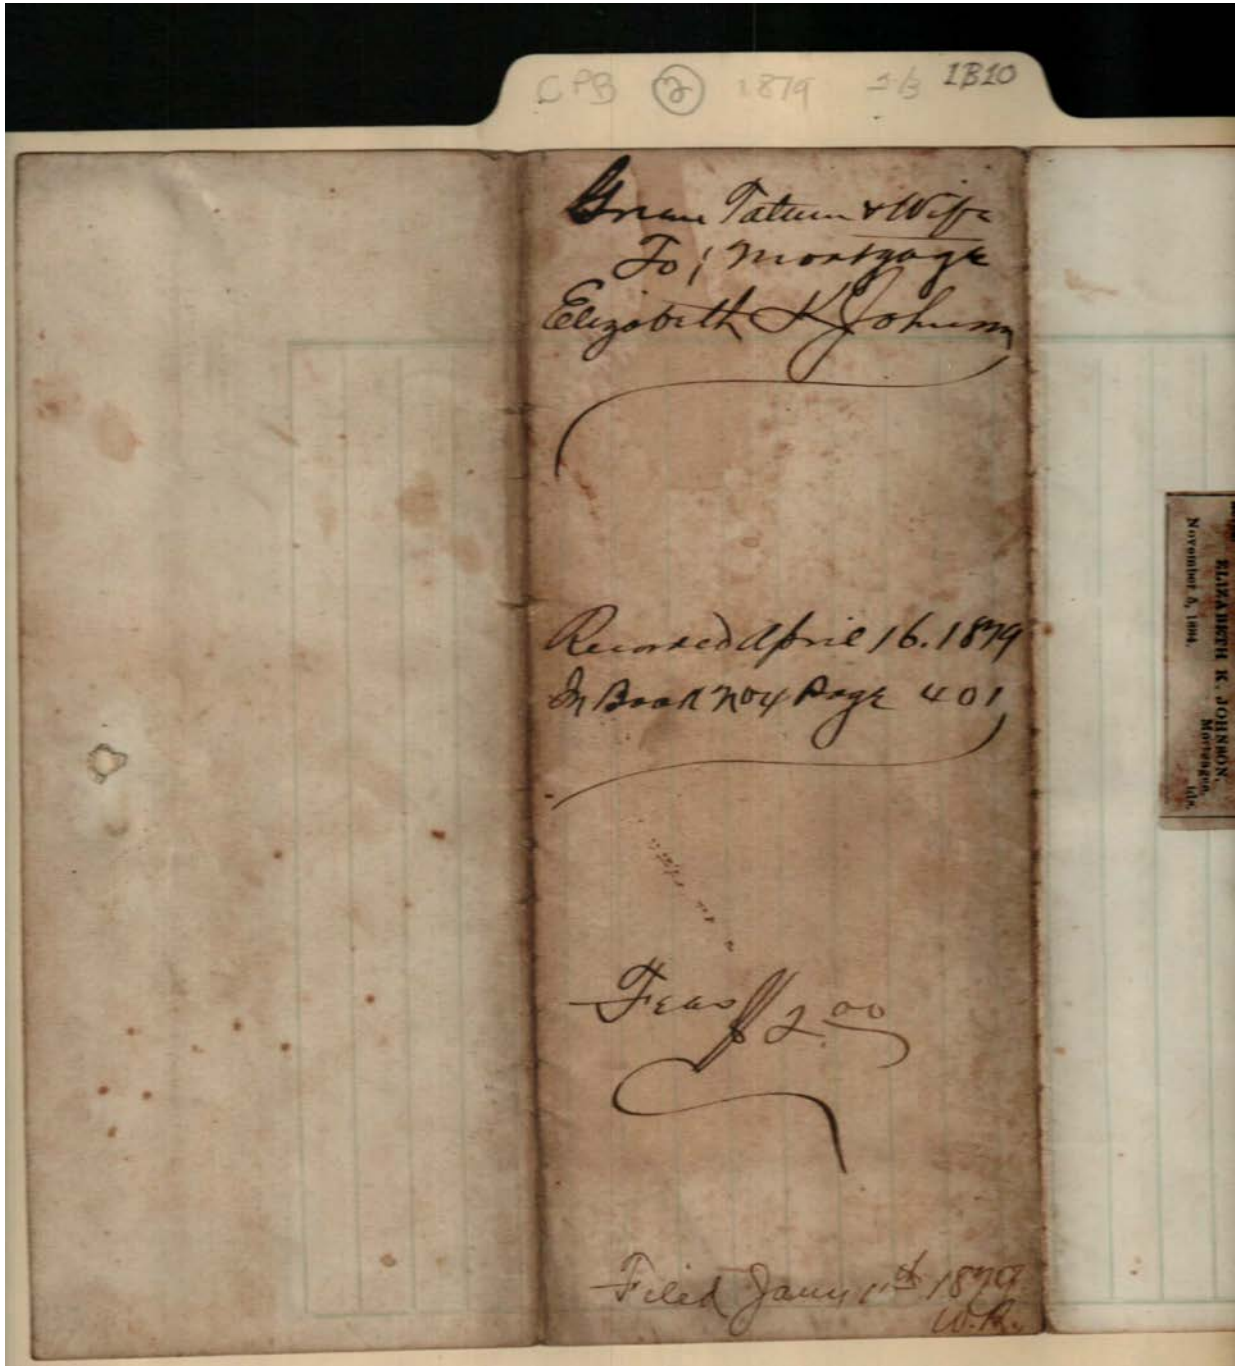 CPB 2 1879 1B10
Green Tatum & Wife
To; Mortgage
Elizabeth K Johnson
Recorded April 16. 1879
In Book No 4 Page 401
Fees $2.00
Filed Jany 1st 1879
W.R.
ELIZABETH K. JOHNSON,
Mortgagee.
November 5,